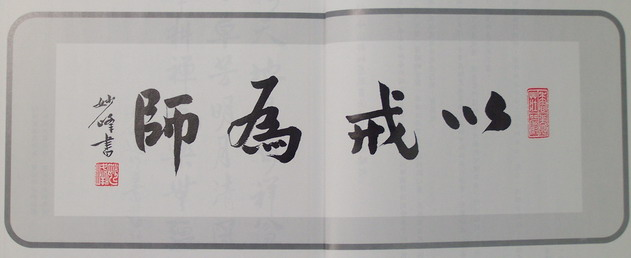 以戒為師
妙峰書